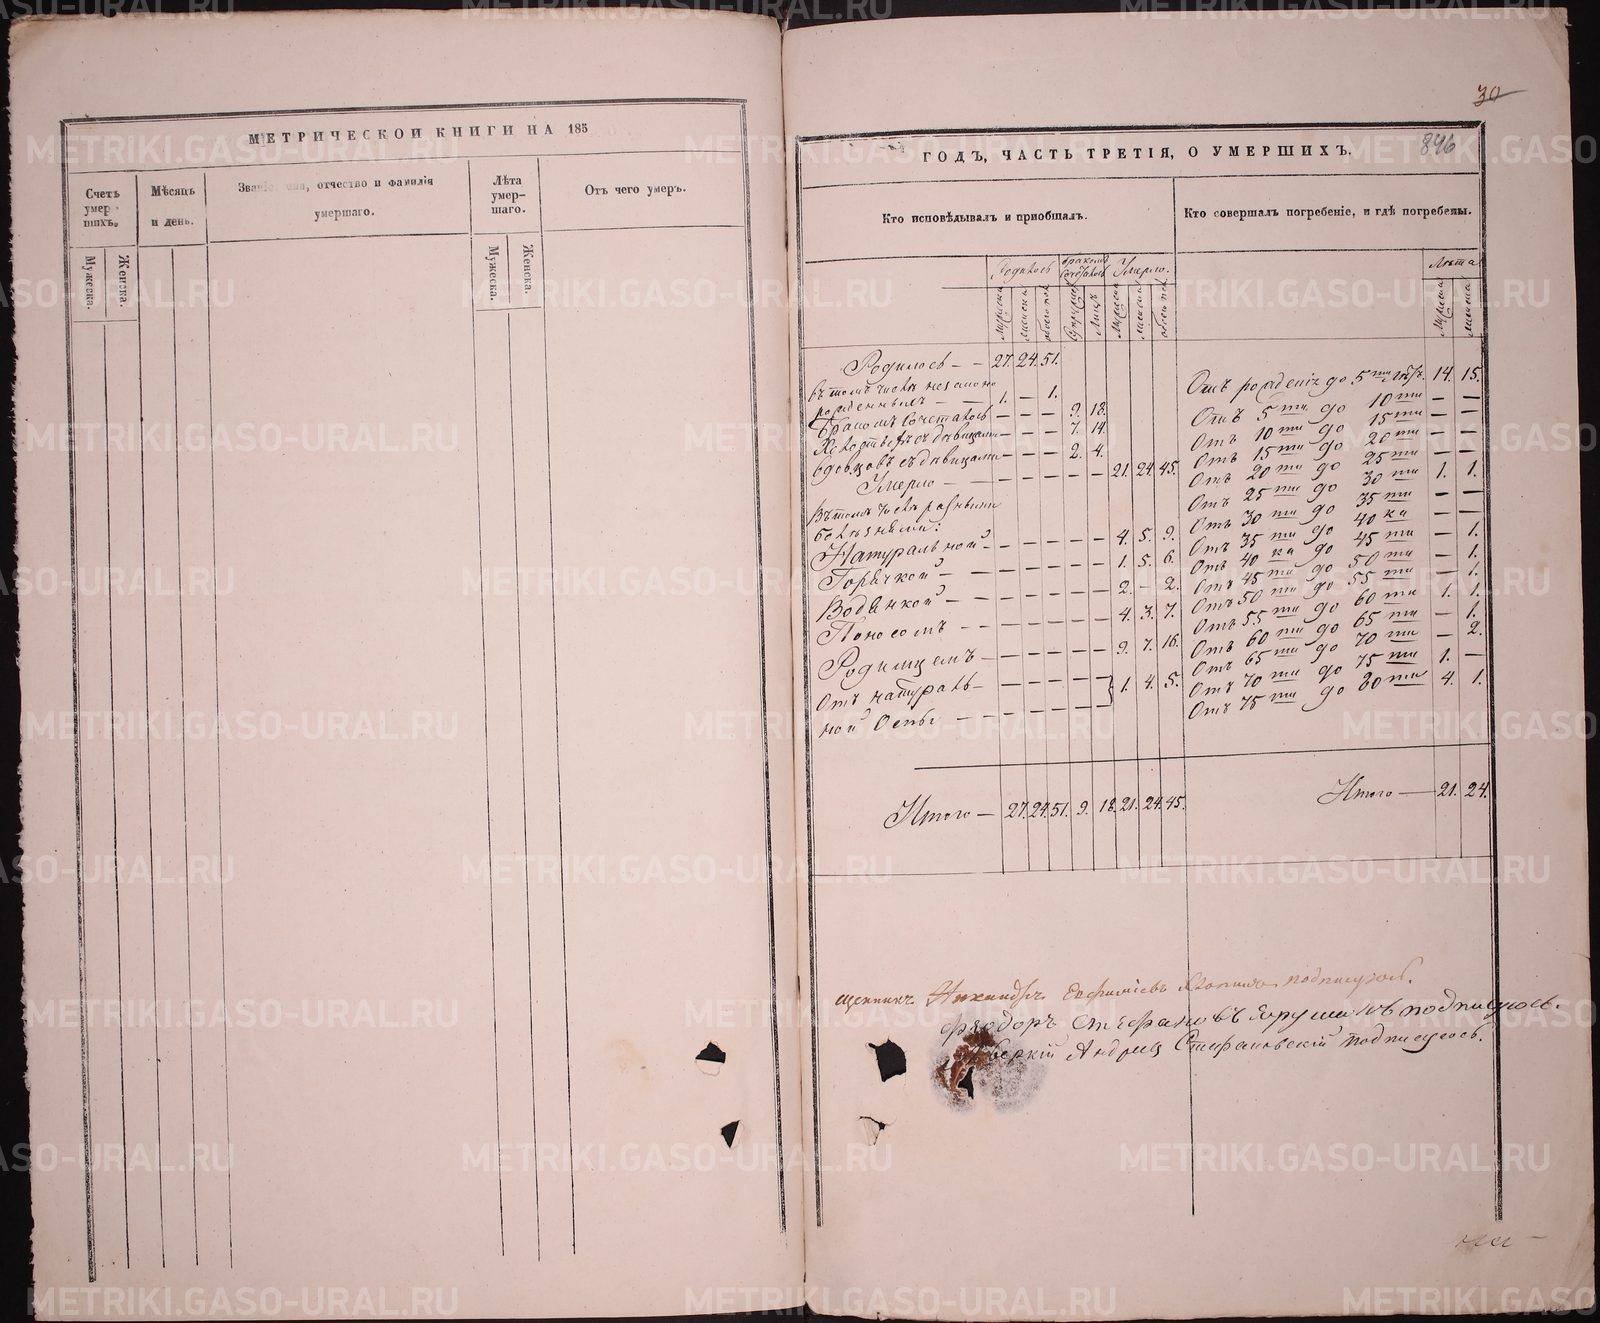 МЕТРИЧЕСКОЙ КНИГИ НА 185
Счетъ умер- шихъ.
Мѣсяцъ и день.
Званіе, имя, отчество и фамилія умершаго.
Лѣта умер- шаго.
Отъ чего умеръ.
Мужеска.
Женска.
Мужеска.
Женска.
30
846
ГОДЪ, ЧАСТЬ ТРЕТІЯ, О УМЕРШИХЪ.
Кто исповѣдывалъ и пріобщалъ.
Кто совершалъ погребеніе, и гдѣ погребены.
Родилось
бракомъ сочеталось
Умерло.
Лѣта
Мужеска
Женска
обоего пол
Супружес
Лицъ
Мужеска
женска
обоего пол
Мужеска
женска
Родилось — — 27. 24. 51.
Въ томъ числѣ незаконно
рожденныхъ — — 1. — 1.
Бракомъ сочеталось — — — 9. 18.
Холостыхъ съ дѣвицами — — — 7. 14.
вдовцовъ съ дѣвицами — — — 2. 4.
Умерло — — — — — — — 21. 24. 45.
Въ томъ числѣ разными
болѣзнями:
Натуральной — — — — — — 4. 5. 9.
Горячкой — — — — — — 1. 5. 6.
Водянкой — — — — — — 2. — 2.
Поносомъ — — — — — — 4. 3. 7.
Родимцемъ — — — — — — 9. 7. 16.
Отъ натураль-
ной Оспы — — — — — — 1. 4. 5.
Итого — 27. 24. 51. 9. 18. 21. 24. 45.
Отъ рожденія до 5ти лѣтъ. 14. 15.
Отъ 5ти до 10ти — —
Отъ 10ти до 15ти — —
Отъ 15ти до 20ти — —
Отъ 20ти до 25ти — —
Отъ 25ти до 30ти 1. 1.
Отъ 30ти до 35ти — —
Отъ 35ти до 40ка — —
Отъ 40ка до 45ти — 1.
Отъ 45ти до 50ти — 1.
Отъ 50ти до 55ти — 1.
Отъ 55ти до 60ти 1. 1.
Отъ 60ти до 65ти — 1.
Отъ 65ти до 70ти — 2.
Отъ 70ти до 75ти 1. —
Отъ 75ти до 80ти 4. 1.
Итого — 21. 24.
щенникъ Никандръ Евфиміевъ подписуюсь.
Феодоръ Стефановъ подписуюсь.
Андрей Стефановскій подписуюсь.
METRIKI.GASO-URAL.RU